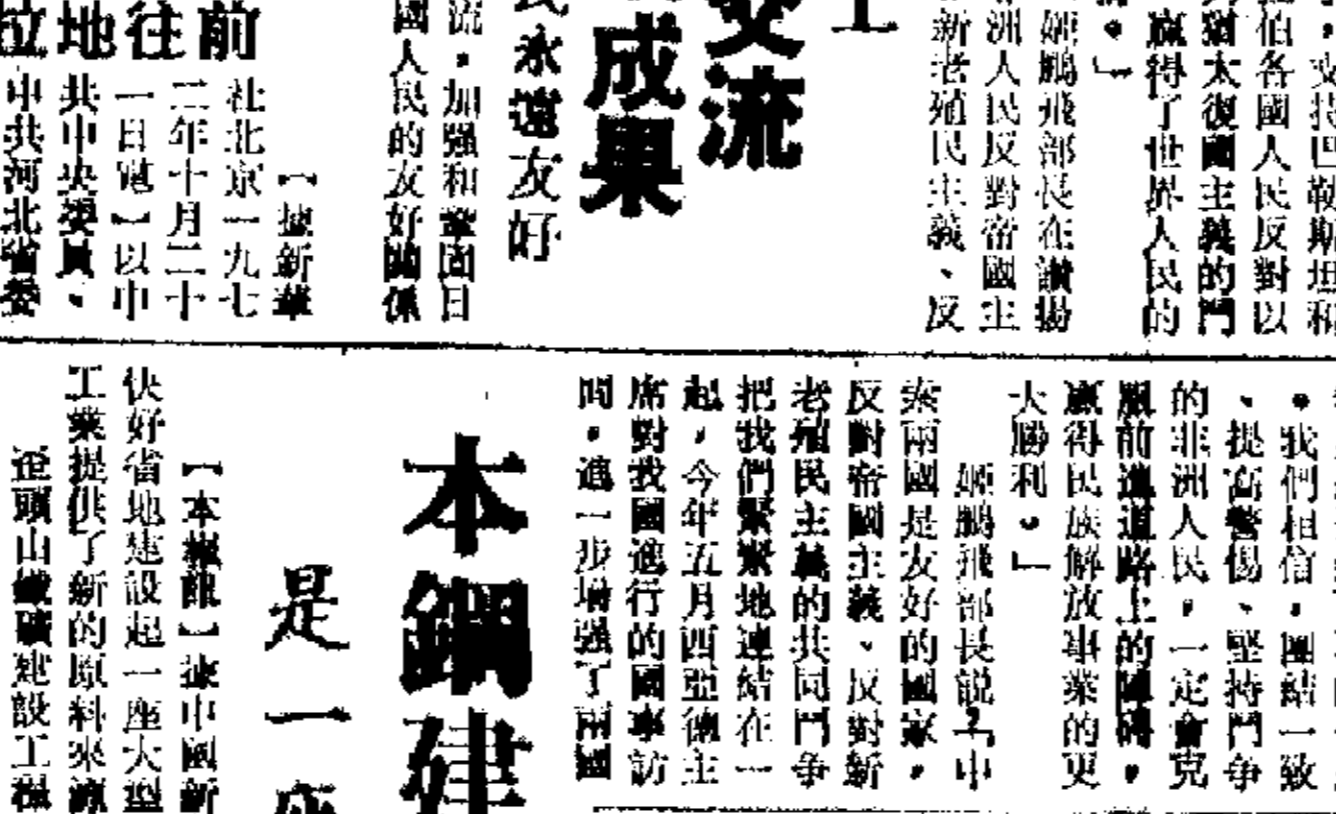 支持巴勒斯坦和
伯各國人民反對以
猶太復國主義的鬥
贏得了世界人民的
。」
姬鵬飛部長在讚揚
洲人民反對帝國主
新老殖民主義、反
工
交流
成果
民永遠友好
流，加强和鞏固日
國人民的友好關係
前往地位
【據新華
社北京一九七
二年十月二十
一日電】以中
共中央委員、
中共河北省委
。我們相信，團結一致
、提高警惕、堅持鬥争
的非洲人民，一定會克
服前進道路上的障碍，
贏得民族解放事業的更
大勝利。」
姬鵬飛部長説：「中
索兩國是友好的國家，
反對帝國主義、反對新
老殖民主義的共同鬥争
把我們緊緊地連結在一
起，今年五月西亞德主
席對我國進行的國事訪
問，進一步增强了兩國
本鋼建
是一座
【本報訊】據中國新
快好省地建設起一座大型
工業提供了新的原料來源
歪頭山鐵礦建設工程